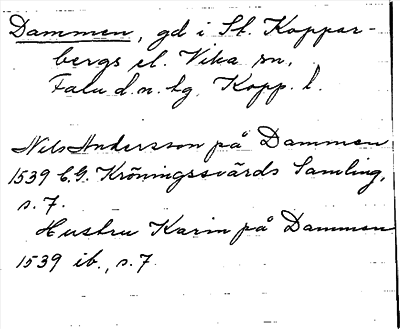 Dammen, gd i St. Koppar-
bergs el. Vika sn,
Falu d.n. lg, Kopp. l.
Nils Andersson på Dammen
1539 C.G. Kröningssvärds Samling,
s. 7.
Hustru Karin på Dammen
1539 ib., s. 7